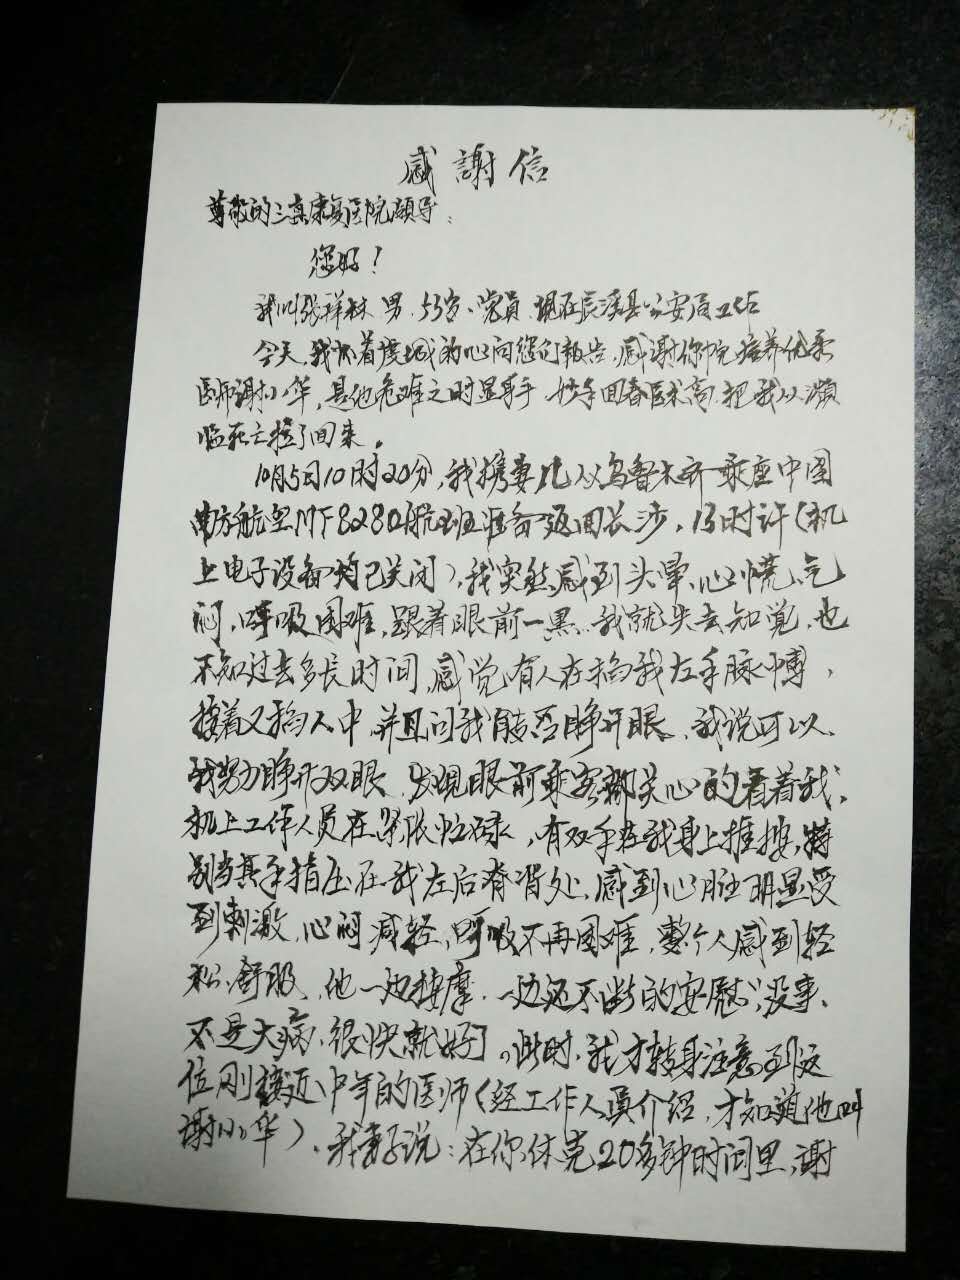 感謝信
尊敬的三真康复医院领导：
您好！
我叫张祥林，男，53岁、党员，现在辰溪县公安局工作
今天，我怀着虔诚的心向您们报告，感谢你院培养优柔
医师谢小华，是他危难之时显身手，妙手回春医术高，把我从濒
临死亡拉了回来。
10月5日10时20分，我携妻儿从乌鲁木齐乘座中国
南方航空MF8280航班准备返回长沙，13时许（机
上电子设备均已关闭），我突然感到头晕、心慌、气
闷，呼吸困难，跟着眼前一黑…我就失去知觉，也
不知过去多长时间，感觉有人在掐我左手脉搏，
接着又掐人中，并且问我能否睁开眼，我说可以，
我努力睁开双眼，发现眼前乘客都关心的看着我，
机上工作人员在紧张忙碌，有双手在我身上推按，特
别当其手指压在我左后脊背处，感到心脏明显受
到刺激，心闷减轻，呼吸不再困难，整个人感到轻
松、舒服，他一边按摩，一边还不断的安慰：没事，
不是大病，很快就好了。此时，我才转身注意到这
位刚接近中年的医师（经工作人员介绍，才知道他叫
谢小华），我妻子说：在你休克20多钟时间里，谢